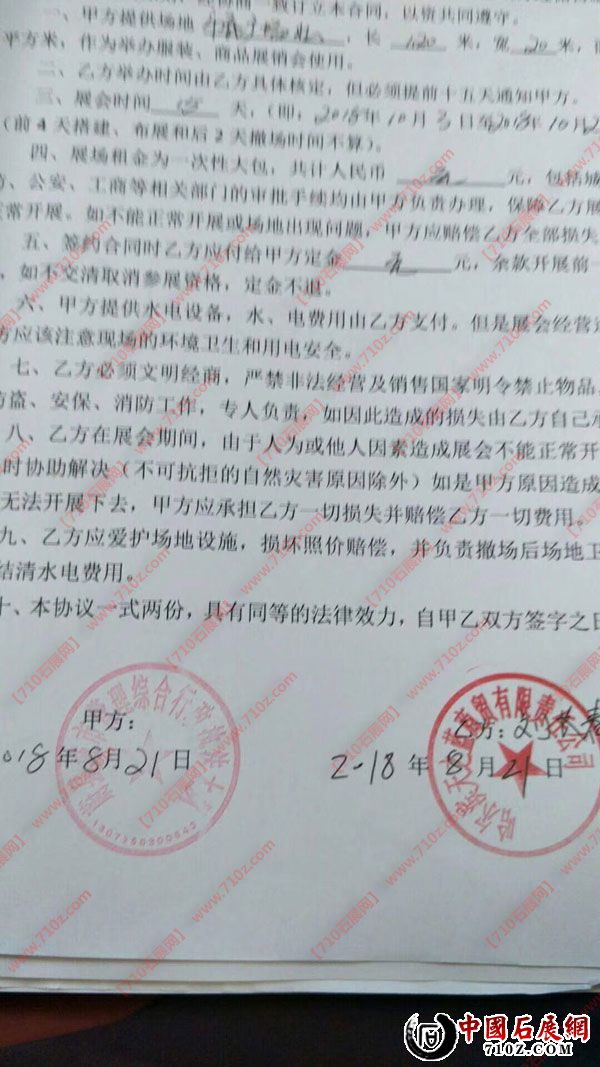 一致订立本合同，以资共同遵守。
一、甲方提供场地 长 120 米，宽 20 米，
平方米，作为举办服装、商品展销会使用。
二、乙方举办时间由乙方具体核定，但必须提前十五天通知甲方。
三、展会时间 天，（即：2018年10月3日至2018年10月2
（前4天搭建、布展和后2天撤场时间不算）。
四、展场租金为一次性大包，共计人民币 元，包括城
、公安、工商等相关部门的审批手续均由甲方负责办理，保障乙方展
常开展。如不能正常开展或场地出现问题，甲方应赔偿乙方全部损失
五、签约合同时乙方应付给甲方定金 元，余款开展前一
，如不交清取消参展资格，定金不退。
六、甲方提供水电设备，水、电费用由乙方支付。但是展会经营
方应该注意现场的环境卫生和用电安全。
七、乙方必须文明经商，严禁非法经营及销售国家明令禁止物品
防盗、安保、消防工作，专人负责，如因此造成的损失由乙方自己承
八、乙方在展会期间，由于人为或他人因素造成展会不能正常开
时协助解决（不可抗拒的自然灾害原因除外）如是甲方原因造成
无法开展下去，甲方应承担乙方一切损失并赔偿乙方一切费用。
九、乙方应爱护场地设施，损坏照价赔偿，并负责撤场后场地卫
结清水电费用。
十、本协议一式两份，具有同等的法律效力，自甲乙双方签字之日
甲方：
乙方：
2018年8月21日
2-18年8月21日
哈尔滨天之蓝商贸有限责任公司
【710石展网】www.710z.com
中國石展網
710Z.COM